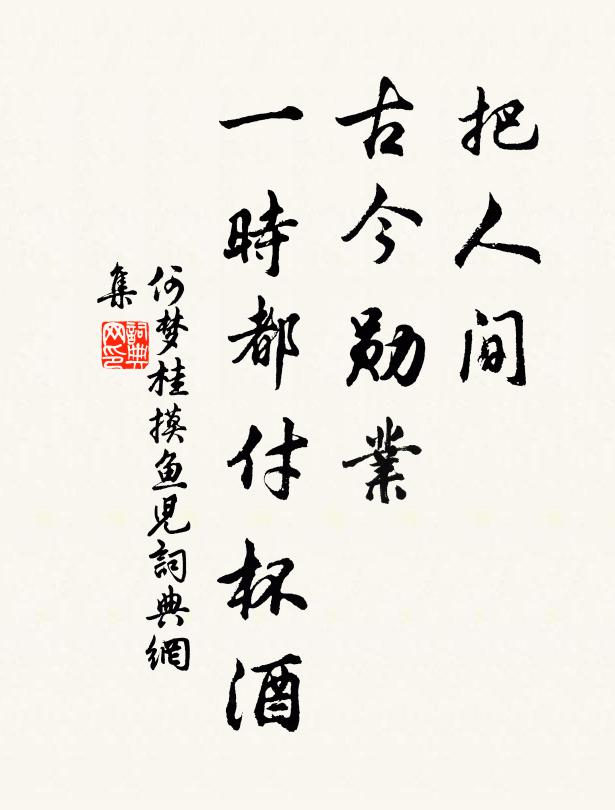 把人间
古今勋業
一時都付杯酒
何梦桂摸鱼児詞典網
集
詞典网印